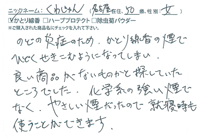 ニックネーム：くわじゅん（名古屋在住、50歳、性別 女）
☑かとり線香 □ハーブプロテクト □除虫菊パウダー
※ご購入された商品名にチェックを入れて下さい。
のどの炎症のため、かとり線香の煙で
せきこむようになってしまい、
良い商品がないものかと探していた
ところでした。化学系の強い煙で
なく、やさしい煙だったので就寝時も
使うことができます。